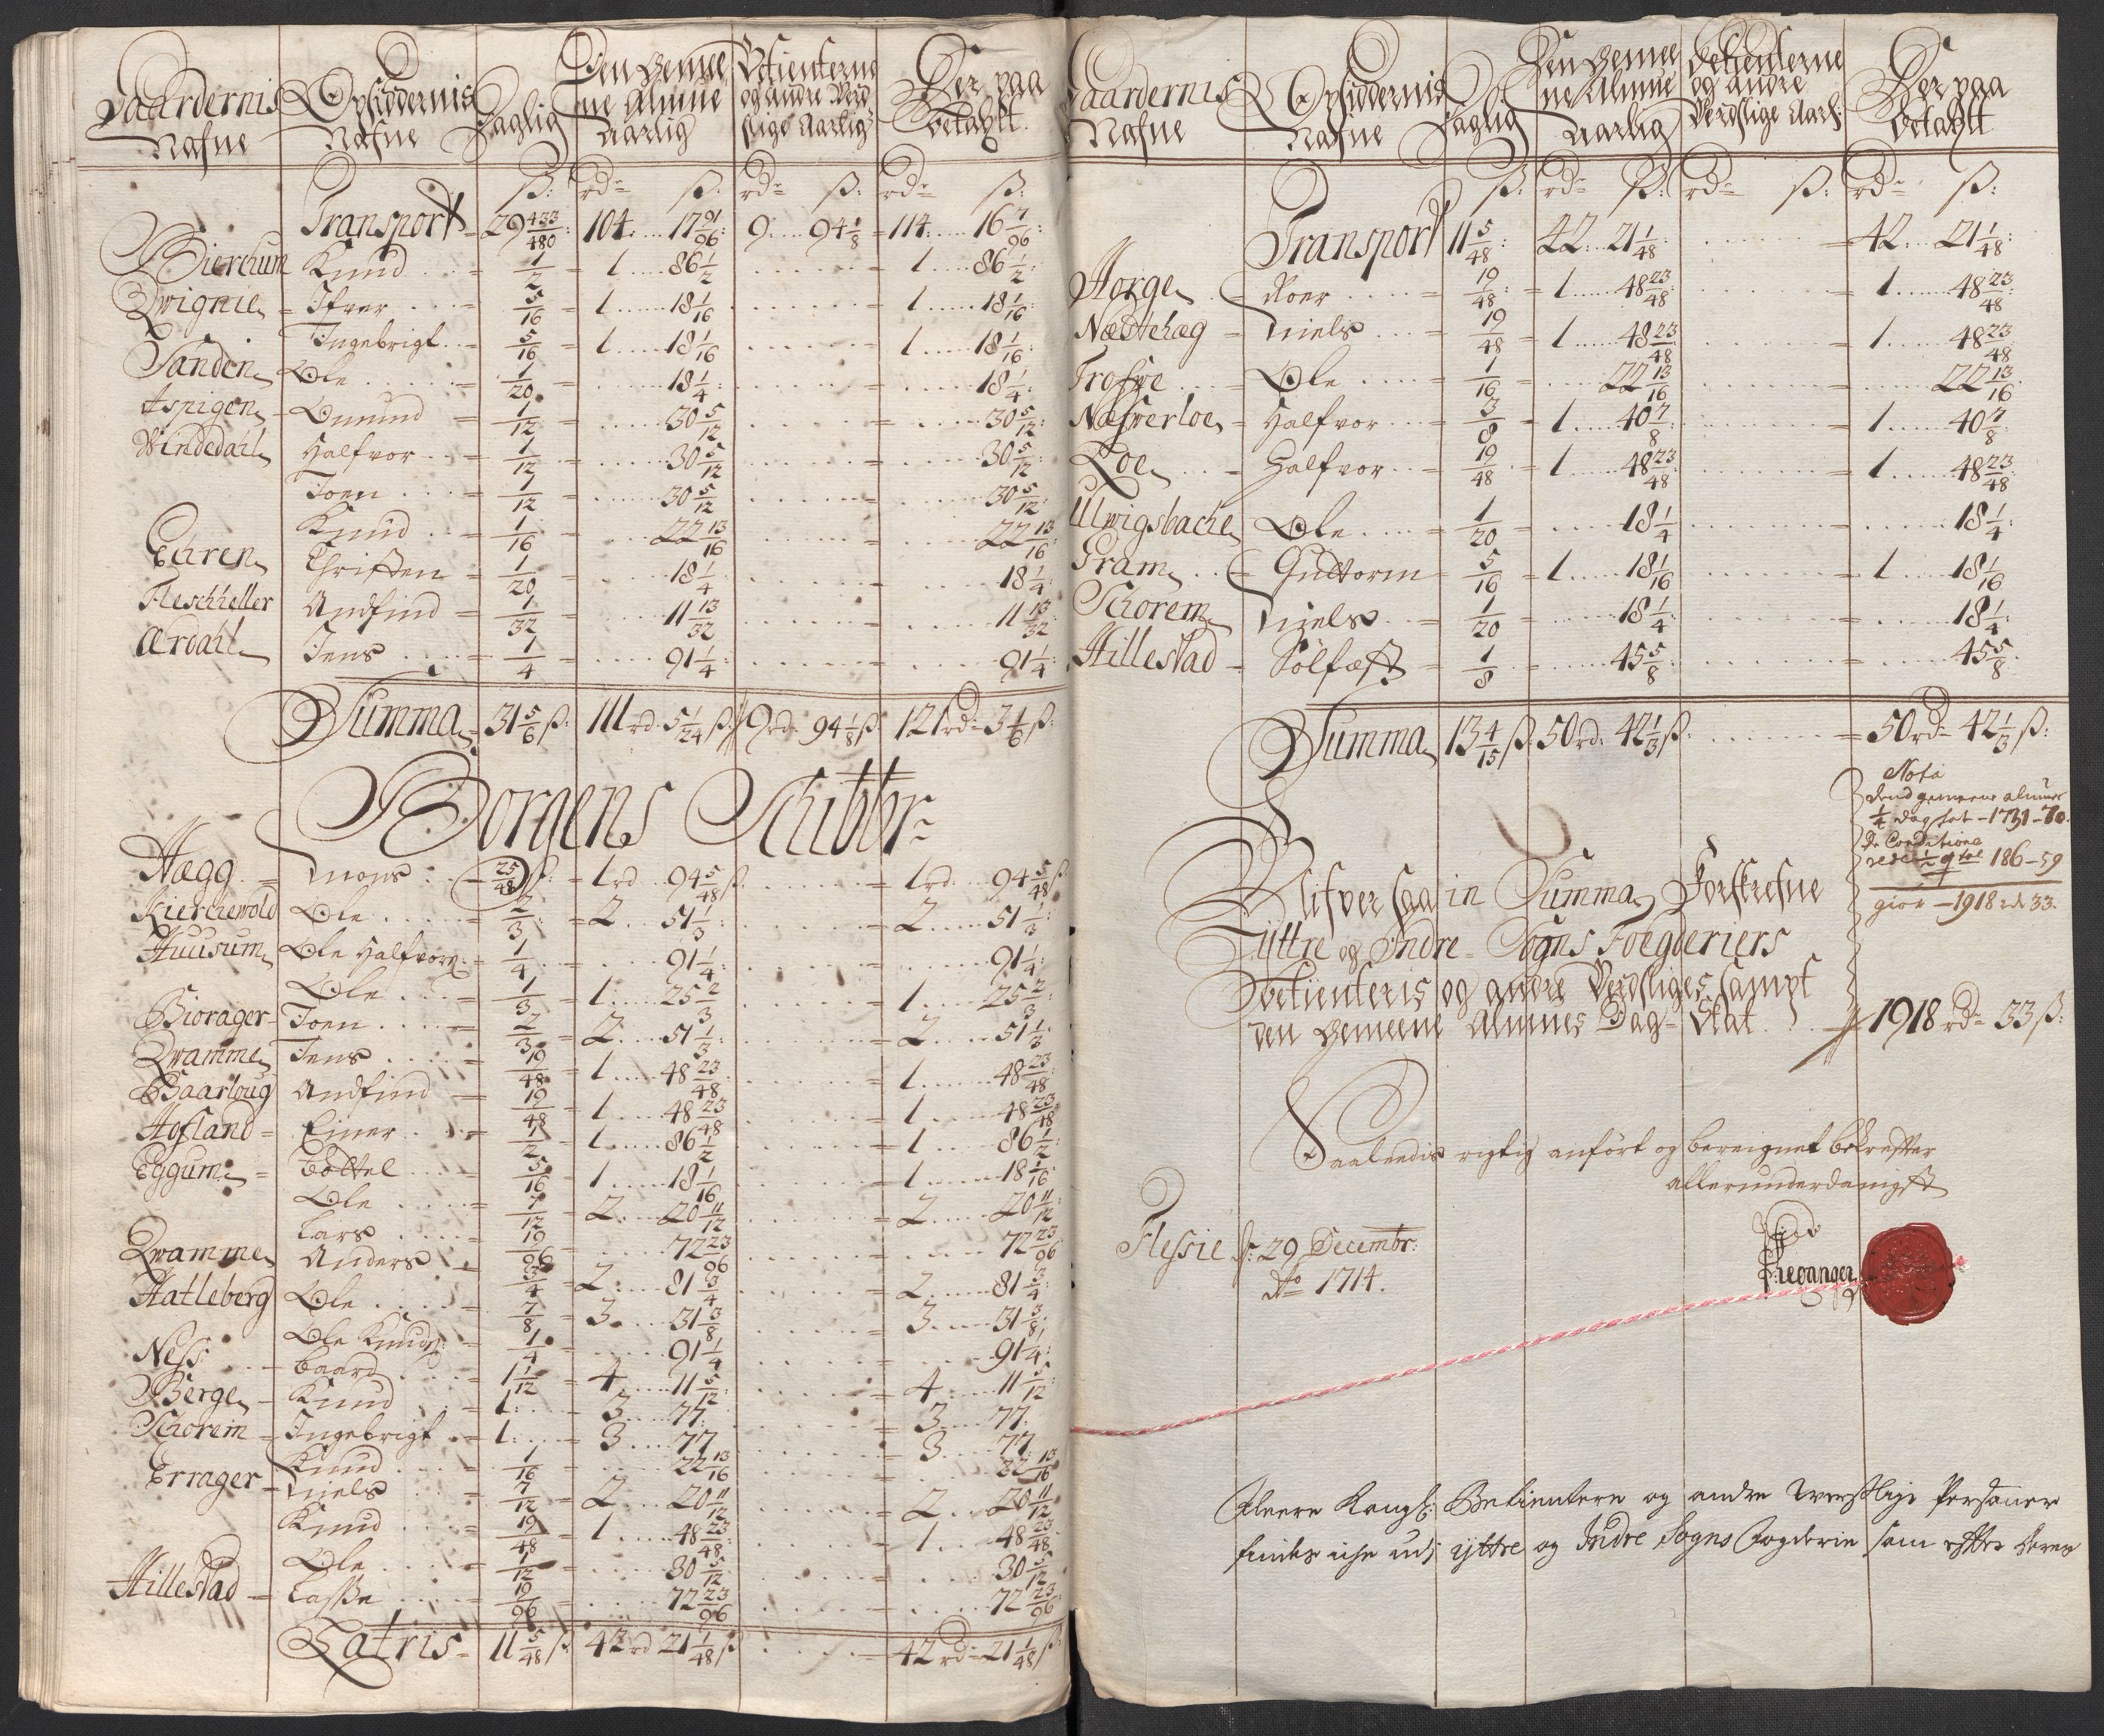 Gaardernis Nafne | Opsiddernis Nafne | Daglig | Den Gemeene Almue Aarlig | Betienterne og andre Verdslige Aarlig | Der paa betahlt
ß: | rdr ß: | rdr ß: | rdr ß:
Transport 29 433/480: 104 17 91/96: 9 94 1/8 114 16 7/96:
Bierchum Knud 1/2 1 86 1/2 1 86 1/2:
Qwignie Ifver 5/16 1 18 1/16 1 18 1/16
Ingebrigt 5/16 1 18 1/16 1 18 1/16
Sanden Ole 1/20 18 1/4 18 1/4:
Aspigen Omund 1/12 30 5/12 30 5/12:
Windedahl Halfvor 1/12 30 5/12 30 5/12
Joen 1/12 30 5/12 30 5/12:
Knud 1/16 22 13/16 22 13/16
Ehren Christen 1/20 18 1/4 18 1/4:
Fleschheller Andfind 1/32 11 13/32 11 13/32
Ærdahl Jens 1/4 91 1/4: 91 1/4:
Summa 31 5/6 ß: 111 rd 5 1/24 ß: 9 rd 94 1/8 ß 121 rdr 3 1/6 ß:
Borgens Schibbr
Hægg Mons 25/48 ß: 1 rd 94 5/48 ß: 1 rd 94 5/48 ß
Kierchewold Ole 2/3: 2 51 1/3 2 51 1/3:
Huusum Ole Halfvors: 1/4 91 1/4: 91 1/4:
Ole 1/3 1 25 2/3 1 25 2/3
Biorager Joen 2/3 2 51 1/3 2 51 1/3
Qwamme Jens 19/48 1 48 23/48 1 48 23/48
Baarloug Andfind 19/48 1 48 23/48 1 48 23/48
Hofland Einer 1/2 1 86 1/2 1 86 1/2:
Eggum Bottel 5/16 1 18 1/16 1 18 1/16:
Ole 7/12 2 20 11/12 2 20 11/12
Lars 19/96 72 23/96 72 23/96
Qwamme Anders 3/4 2 81 3/4 2 81 3/4:
Hatleberg Ole 7/8 3 31 3/8 3 31 3/8:
Ole Knuds: 1/4 91 1/4 91 1/4:
Ness Baard 1 1/12 4 11 5/12: 4 11 5/12
Berge Knud 1: 3 77: 3 77:
Schorem Ingebrigt 1: 3 77 3 77
Knud 1/16 22 13/16 22 13/16
Errager Niels 7/12 2 20 11/12 2 20 11/12
Knud 19/48 1 48 23/48: 1 48 23/48
Ole 1/12 30 5/12 30 5/12
Hillestad Lasse 19/96 72 23/96 72 23/96
Latris 11 5/48 ß: 42 rd 21 1/48 ß 42 rdr 21 1/48 ß:
Gaardernis Nafne | Opsiddernis Nafne | Daglig | Den Gemeene Almue Aarlig | Betienterne og andre Verdslige Aarl: | Der paa betahlt
ß: | rdr ß: | rdr ß: | rdr ß:
Transport 11 5/48: 42 21 1/48 42 21 1/48:
Horge Roer 19/48: 1 48 23/48 1 48 23/48:
Nædrehæg Niels 19/48 1 48 23/48 1 48 23/48
Troswe Ole 1/16 22 13/16 22 13/16
Næswerloe Halfvor 3/8 1 40 7/8 1 40 7/8
Loe Halfvor 19/48 1 48 23/48 1 48 23/48
Ulwigsbache Ole 1/20 18 1/4 18 1/4:
Fram Guttorm 5/16 1 18 1/16 1 18 1/16
Schorem Niels 1/20 18 1/4: 18 1/4:
Hillestad Solfæst 1/8 45 5/8: 45 5/8:
Summa 13 4/15 ß: 50 rd: 42 1/3 ß: 50 rdr 42 1/3 ß:
Nota
dend gemeene almues
1/4 dag skat - 1731 - 70.
De Conditione
rede 186 - 59
giør - 1918 rdr 33.
Blifver saa in Summa Forskrefne
Yttre og Indre Sogns Foegderiers
Betienteris og andre Verdsliges sampt
den Gemeene Almues Dag-Skat 1918 rdr 33 ß:
Saaleedis rigtig anført og bereignet bekrefter
allerunderdanigst
Flessie d: 29 Decembr:
Ao 1714.
Alleere Kongl: Betientere og andre werdslige Personer
findes iche udj yttre og Indre Sogns Fogderie som efter deres